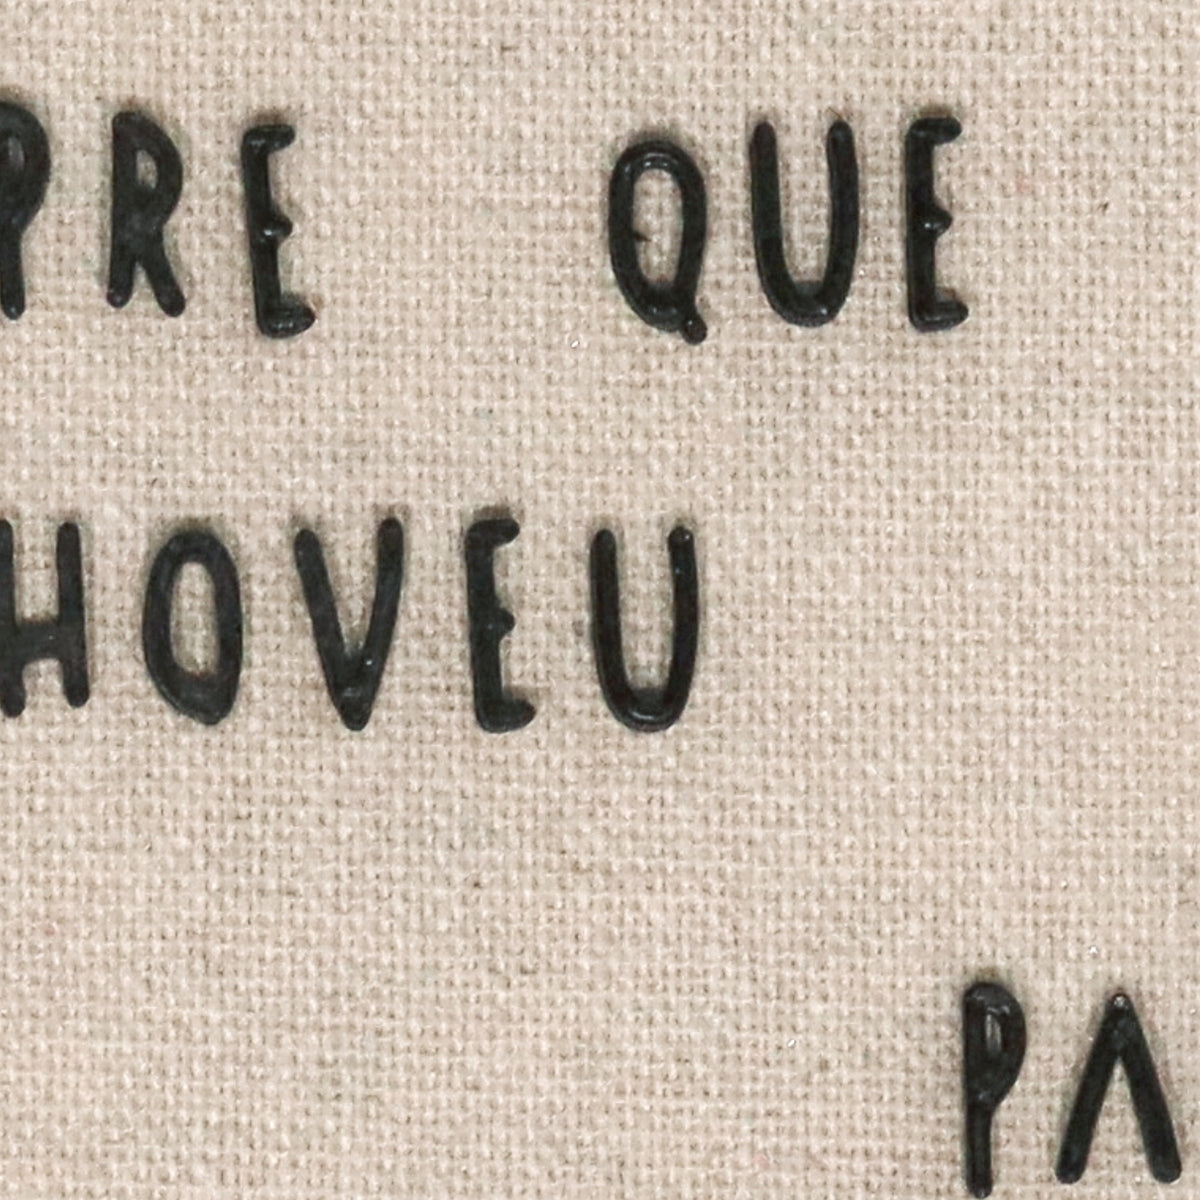 PRE QUE
HOVEU
PA